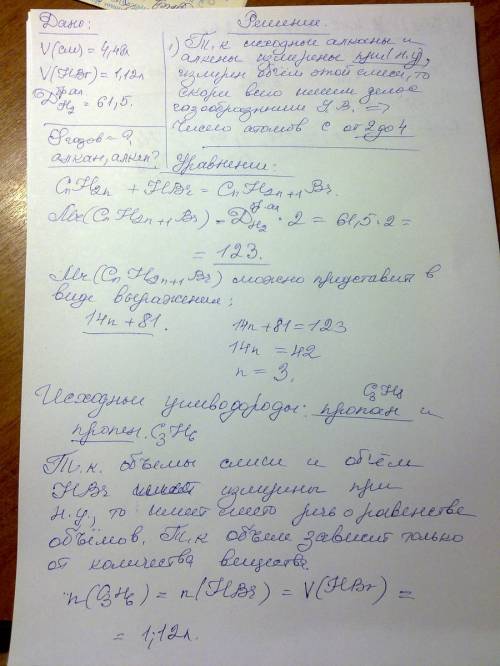 Дано:
V(см) = 4,48л
V(HBr) = 1,12л
D H2 фал. = 61,5.
φ газов = ?
алкан, алкен?
Решение.
1) Т.к исходные алканы и
алкены измерены при(н.у),
измерен объём этой смеси, то
скорее всего имеем дело с
газообразными У.В. =>
Число атомов C от 2 до 4
Уравнение:
CnH2n + HBr = CnH2n+1Br.
Mr(CnH2n+1Br) = D H2 · 2 = 61,5·2=
= 123.
Mr(CnH2n+1Br) можно представит в
виде выражения:
14n+81.
14n+81=123
14n = 42
n = 3.
Исходные углеводороды: пропан C3H8 и
пропен. C3H6
Т.к. объемы смиси и объём
HBr измирины при
н.у, то имеет место речь о равенстве
объёмов. Т.к объем зависит только
от количества веществ.
n(C3H6) = n(HBr) = V(HBr) =
= 1,12л.